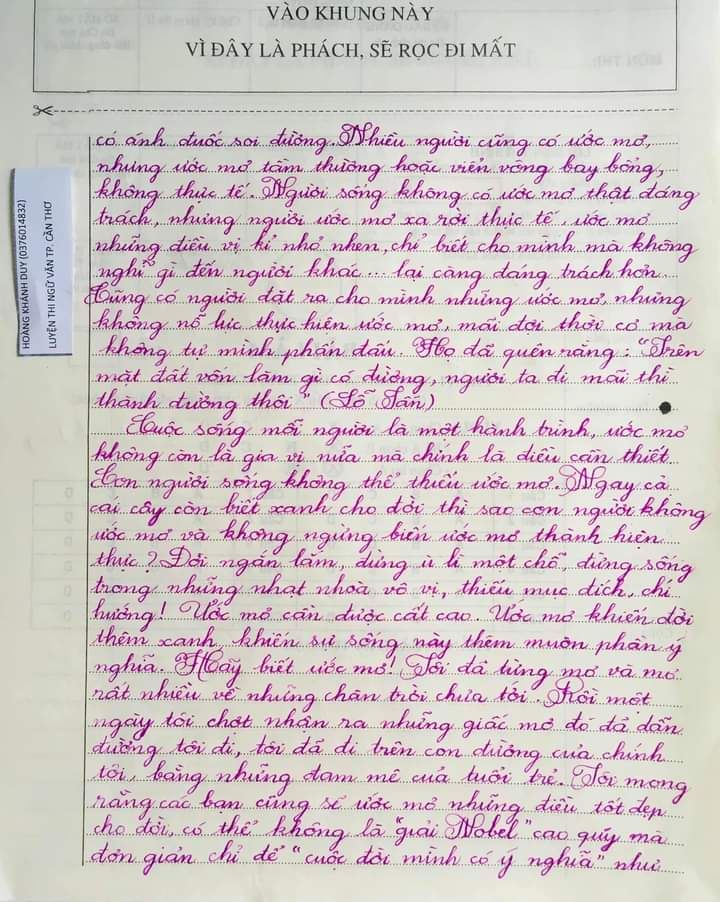 VÀO KHUNG NÀY
VÌ ĐÂY LÀ PHÁCH, SẼ RỌC ĐI MẤT
HOÀNG KHÁNH DUY (0376014832)
LUYỆN THI NGỮ VĂN TP. CẦN THƠ
có ánh đuốc soi đường. Nhiều người cũng có ước mơ,
nhưng ước mơ tầm thường hoặc viển vông bay bổng,
không thực tế. Người sống không có ước mơ thật đáng
trách, nhưng người ước mơ xa rời thực tế, ước mơ
những điều vị kỉ nhỏ nhen, chỉ biết cho mình mà không
nghĩ gì đến người khác... lại càng đáng trách hơn.
Cũng có người đặt ra cho mình những ước mơ, nhưng
không nỗ lực thực hiện ước mơ, mãi đợi thời cơ mà
không tự mình phấn đấu. Họ đã quên rằng: "Trên
mặt đất vốn làm gì có đường, người ta đi mãi thì
thành đường thôi" (Lỗ Tấn)
Cuộc sống mỗi người là một hành trình, ước mơ
không còn là gia vị nữa mà chính là điều cần thiết.
Con người sống không thể thiếu ước mơ. Ngay cả
cái cây còn biết xanh cho đời thì sao con người không
ước mơ và không ngừng biến ước mơ thành hiện
thực? Đời ngắn lắm, đừng ù lì một chỗ, đừng sống
trong những nhạt nhoà vô vị, thiếu mục đích, chí
hướng! Ước mơ cần được cất cao. Ước mơ khiến đời
thêm xanh, khiến sự sống này thêm muôn phần ý
nghĩa. Hãy biết ước mơ! Tôi đã từng mơ và mơ
rất nhiều về những chân trời chưa tới. Rồi một
ngày tôi chợt nhận ra những giấc mơ đó đã dẫn
đường tôi đi, tôi đã đi trên con đường của chính
tôi, bằng những đam mê của tuổi trẻ. Tôi mong
rằng các bạn cũng sẽ ước mơ những điều tốt đẹp
cho đời, có thể không là "giải Nobel" cao quý mà
đơn giản chỉ để "cuộc đời mình có ý nghĩa" như